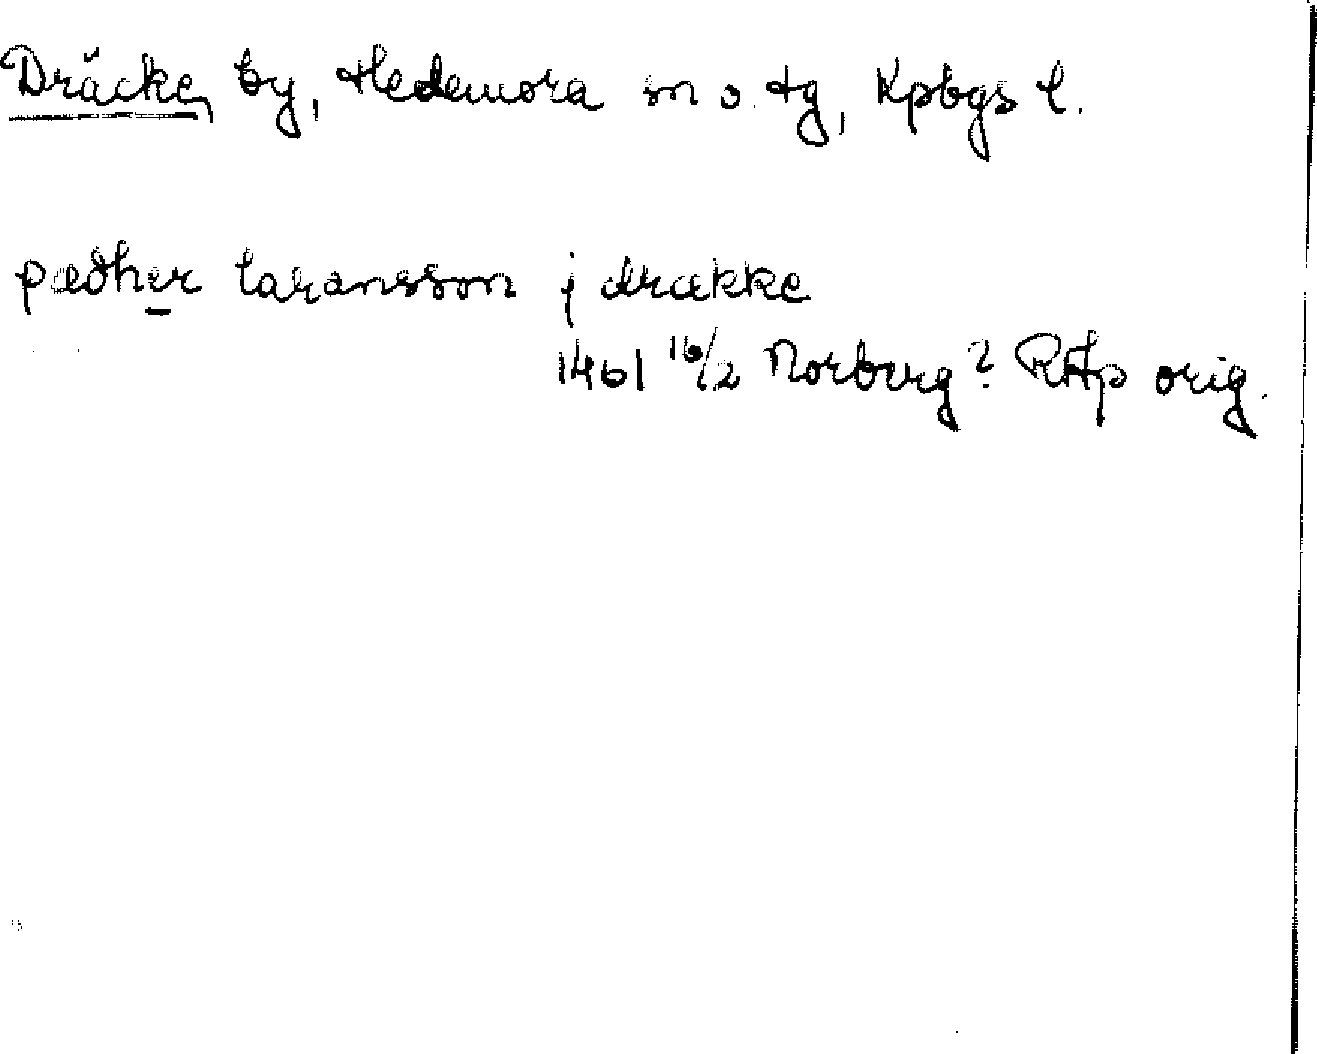 Dräcke, by, Hedemora sn o. tg, Kpbgs l.
pædher laransson j drække
1461 16/2 Norburg? RAp orig.